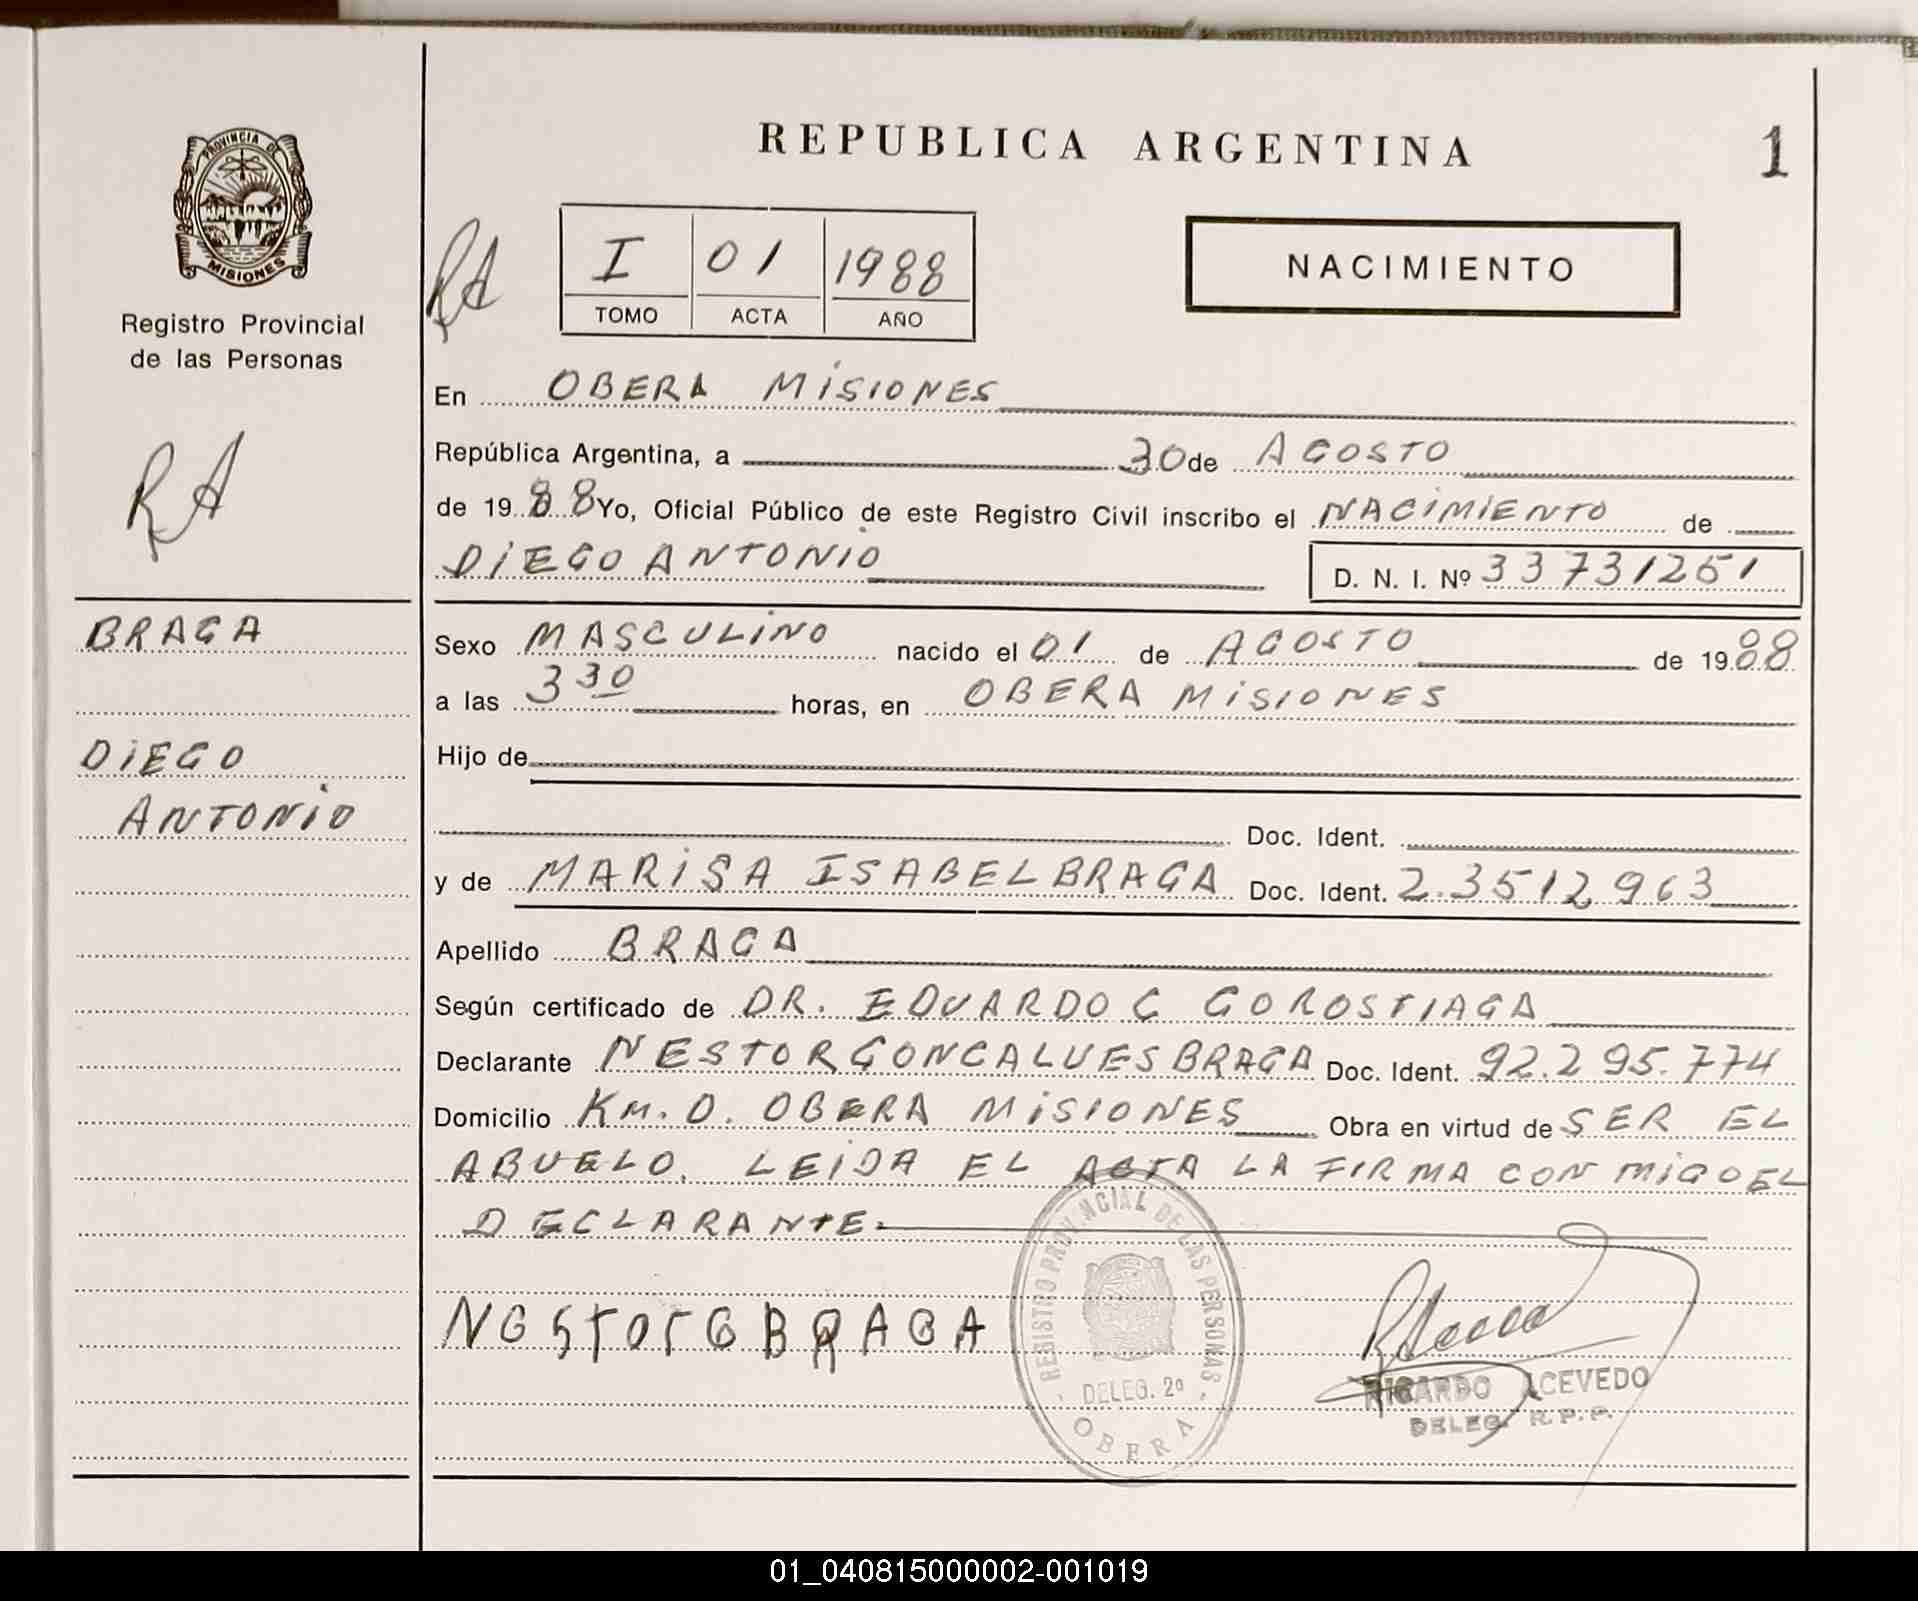 PROVINCIA DE
MISIONES
Registro Provincial
de las Personas
RA
BRAGA
DIEGO
ANTONIO
REPUBLICA ARGENTINA
1
RA
I 01 1988
TOMO ACTA AÑO
NACIMIENTO
En OBERA MISIONES
República Argentina, a 30 de AGOSTO
de 1988 Yo, Oficial Público de este Registro Civil inscribo el NACIMIENTO de
DIEGO ANTONIO D. N. I. Nº 33731251
Sexo MASCULINO nacido el 01 de AGOSTO de 1988
a las 3 30 horas, en OBERA MISIONES
Hijo de
Doc. Ident.
y de MARISA ISABEL BRAGA Doc. Ident. 23512963
Apellido BRAGA
Según certificado de DR. EDUARDO C GOROSTIAGA
Declarante NESTOR GONCALUES BRAGA Doc. Ident. 92.295.774
Domicilio Km. 0. OBERA MISIONES Obra en virtud de SER EL
ABUELO. LEIDA EL ACTA LA FIRMA CON MIGO EL
DECLARANTE.
NGSTOrGBRAGA
REGISTRO PROVINCIAL DE LAS PERSONAS
DELEG. 2ª
OBERA
RICARDO ACEVEDO
DELEG. R.P.P.
01_040815000002-001019